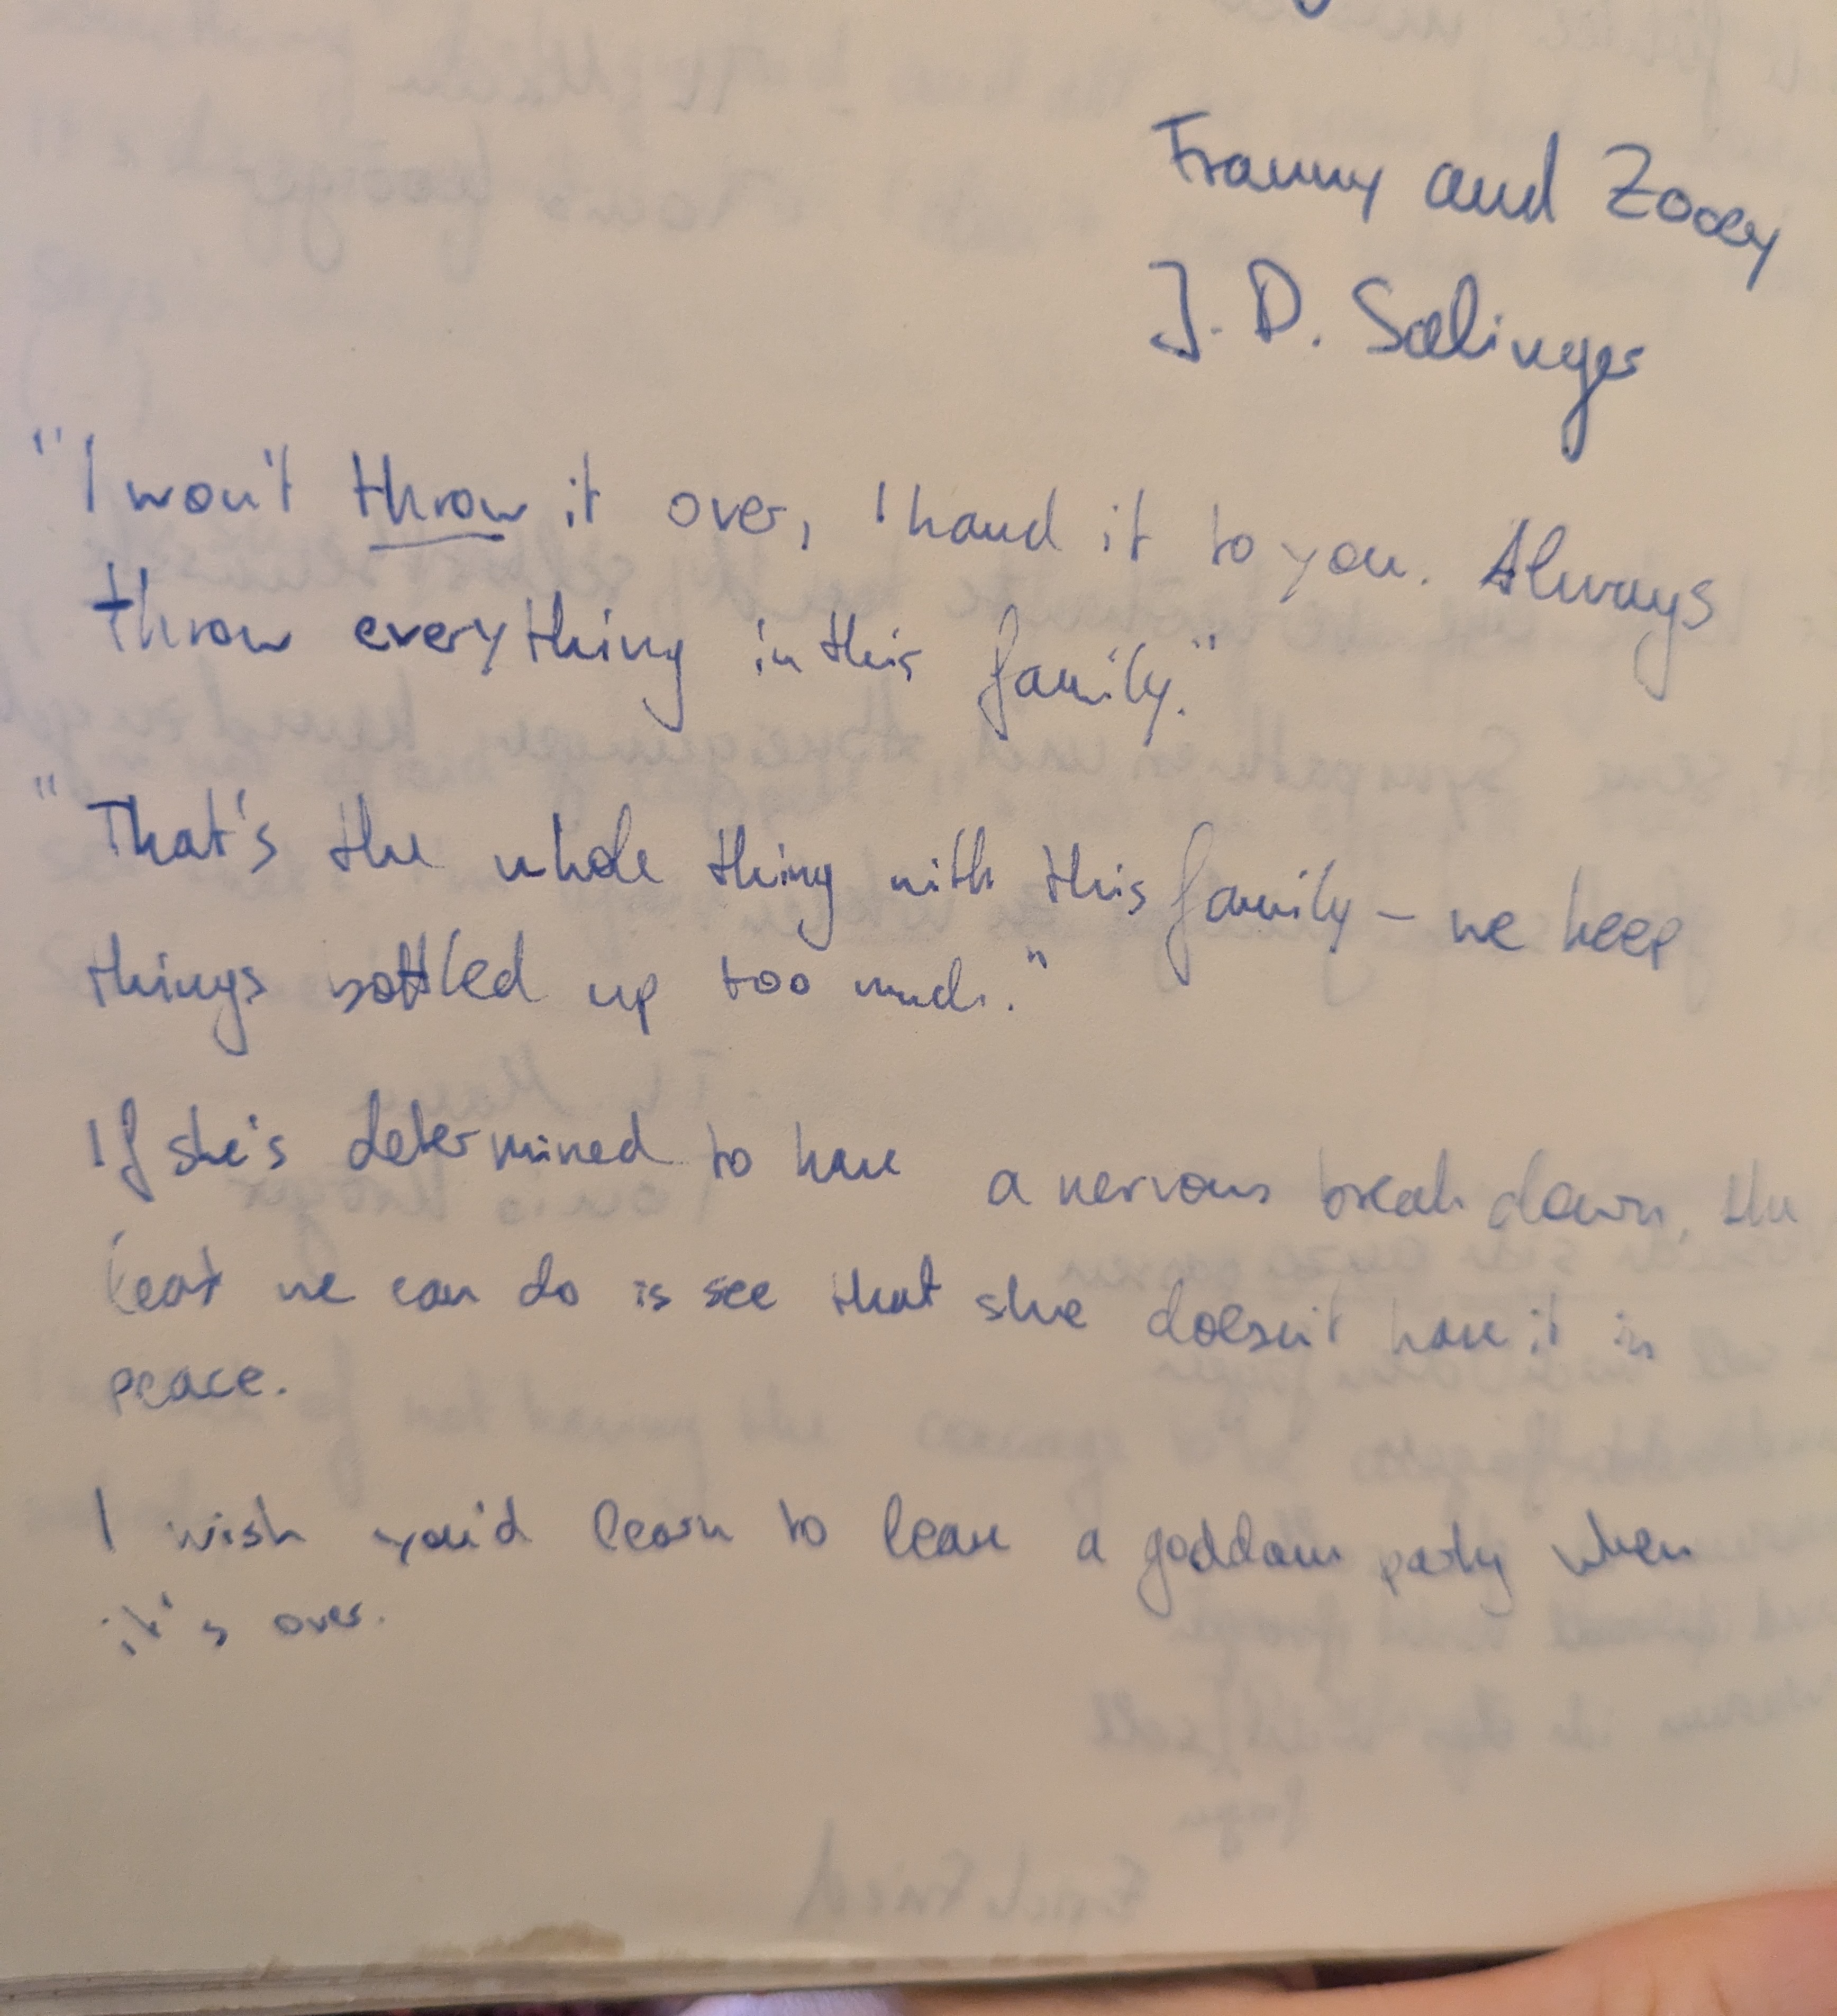 Franny and Zooey
J. D. Salinger
"I won't throw it over, I hand it to you. Always
throw everything in this family."
"That's the whole thing with this family – we keep
things bottled up too much."
If she's determined to have a nervous breakdown, the
least we can do is see that she doesn't have it in
peace.
I wish you'd learn to leave a goddam party when
it's over.